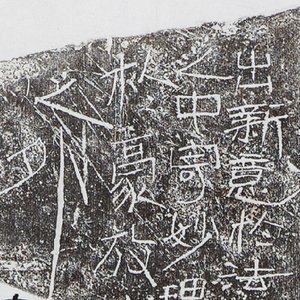 出新意於法
之中寄妙理
於豪放